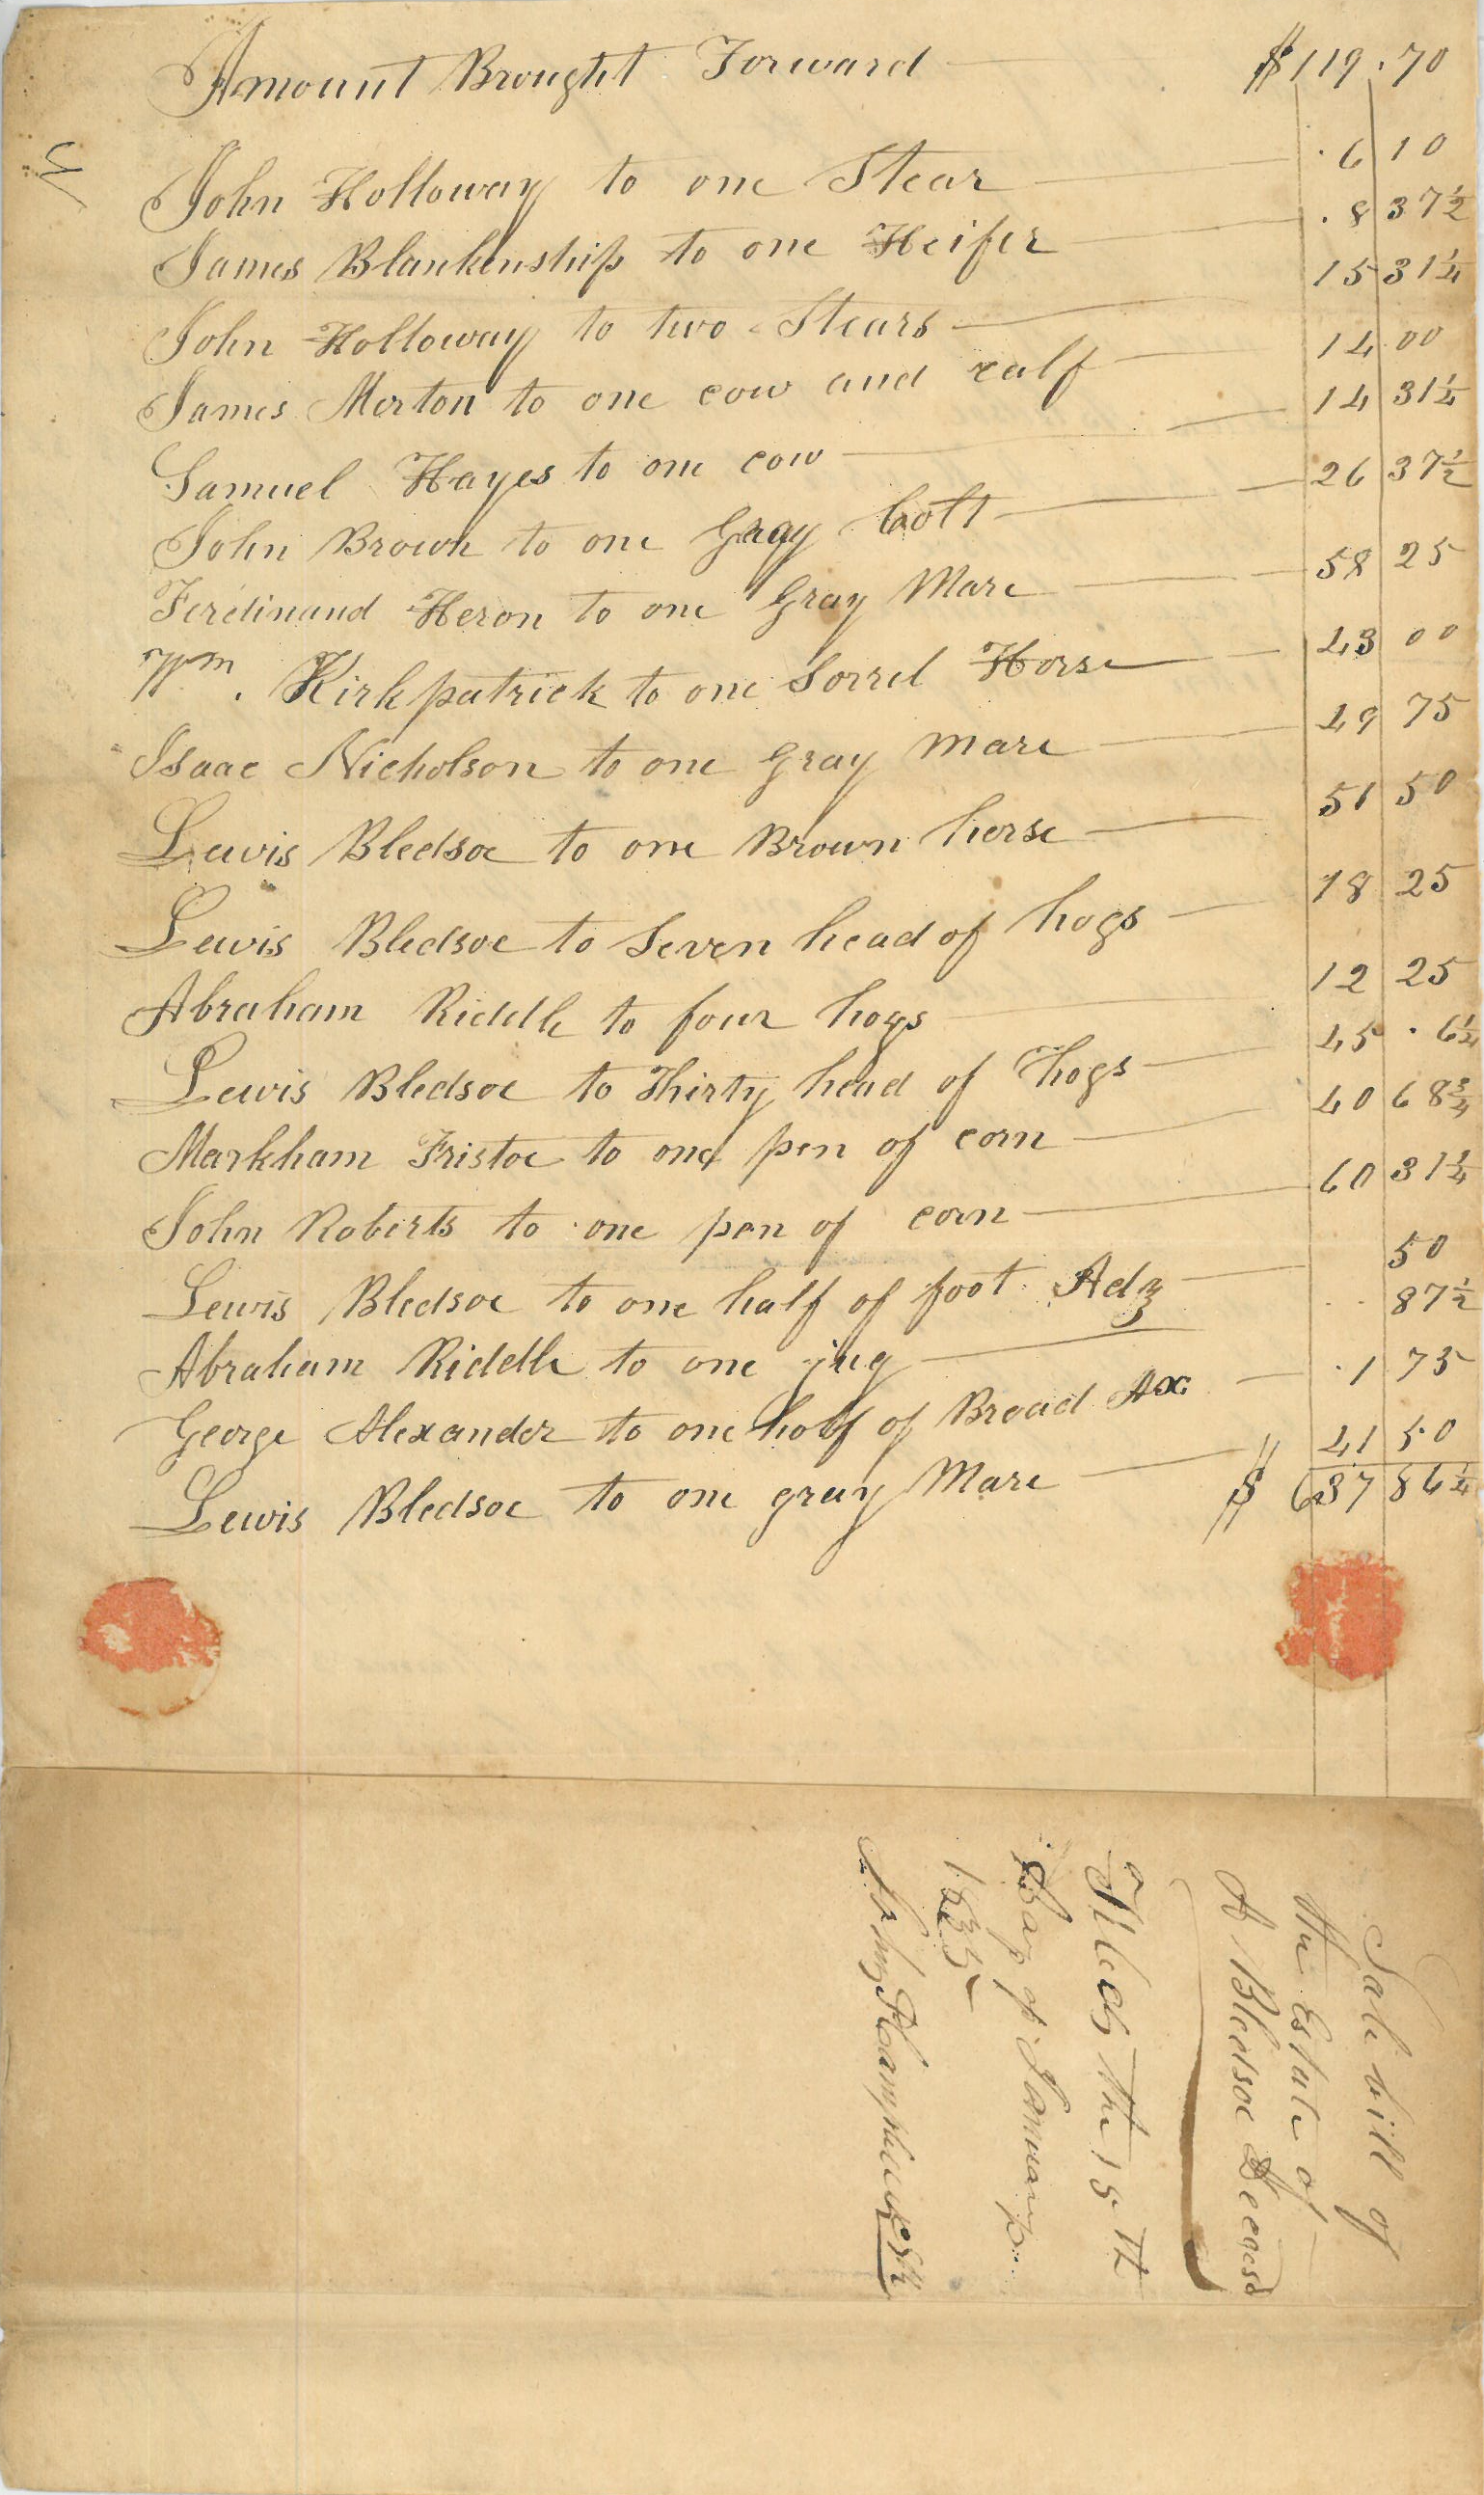 Amount Brought Forward $119.70
John Holloway to one Stear . 6 10
James Blankenship to one Heifer . 8 37½
John Holloway to two Stears 15 31¼
James Morton to one cow and calf 14 00
Samuel Hayes to one cow 14 31¼
John Brown to one Gray Colt 26 37½
Ferdinand Heron to one Gray Mare 58 25
Wm. Kirkpatrick to one Sorrel Horse 43 00
Isaac Nicholson to one Gray mare 49 75
Lewis Bledsoe to one Brown horse 51 50
Lewis Bledsoe to Seven head of hogs 18 25
Abraham Riddle to four hogs 12 25
Lewis Bledsoe to Thirty head of hogs 45 . 6¼
Markham Fristoe to one pen of corn 40 68¾
John Roberts to one pen of corn 60 31¼
Lewis Bledsoe to one half of foot Adz 50
Abraham Riddle to one jug 87½
George Alexander to one half of Broad Ax . 1 75
Lewis Bledsoe to one gray Mare 41 50
$ 637 86¼
Sale bill of
the Estate of
A Bledsoe Deceasd
Filed the 18th
Day of January
1835
John